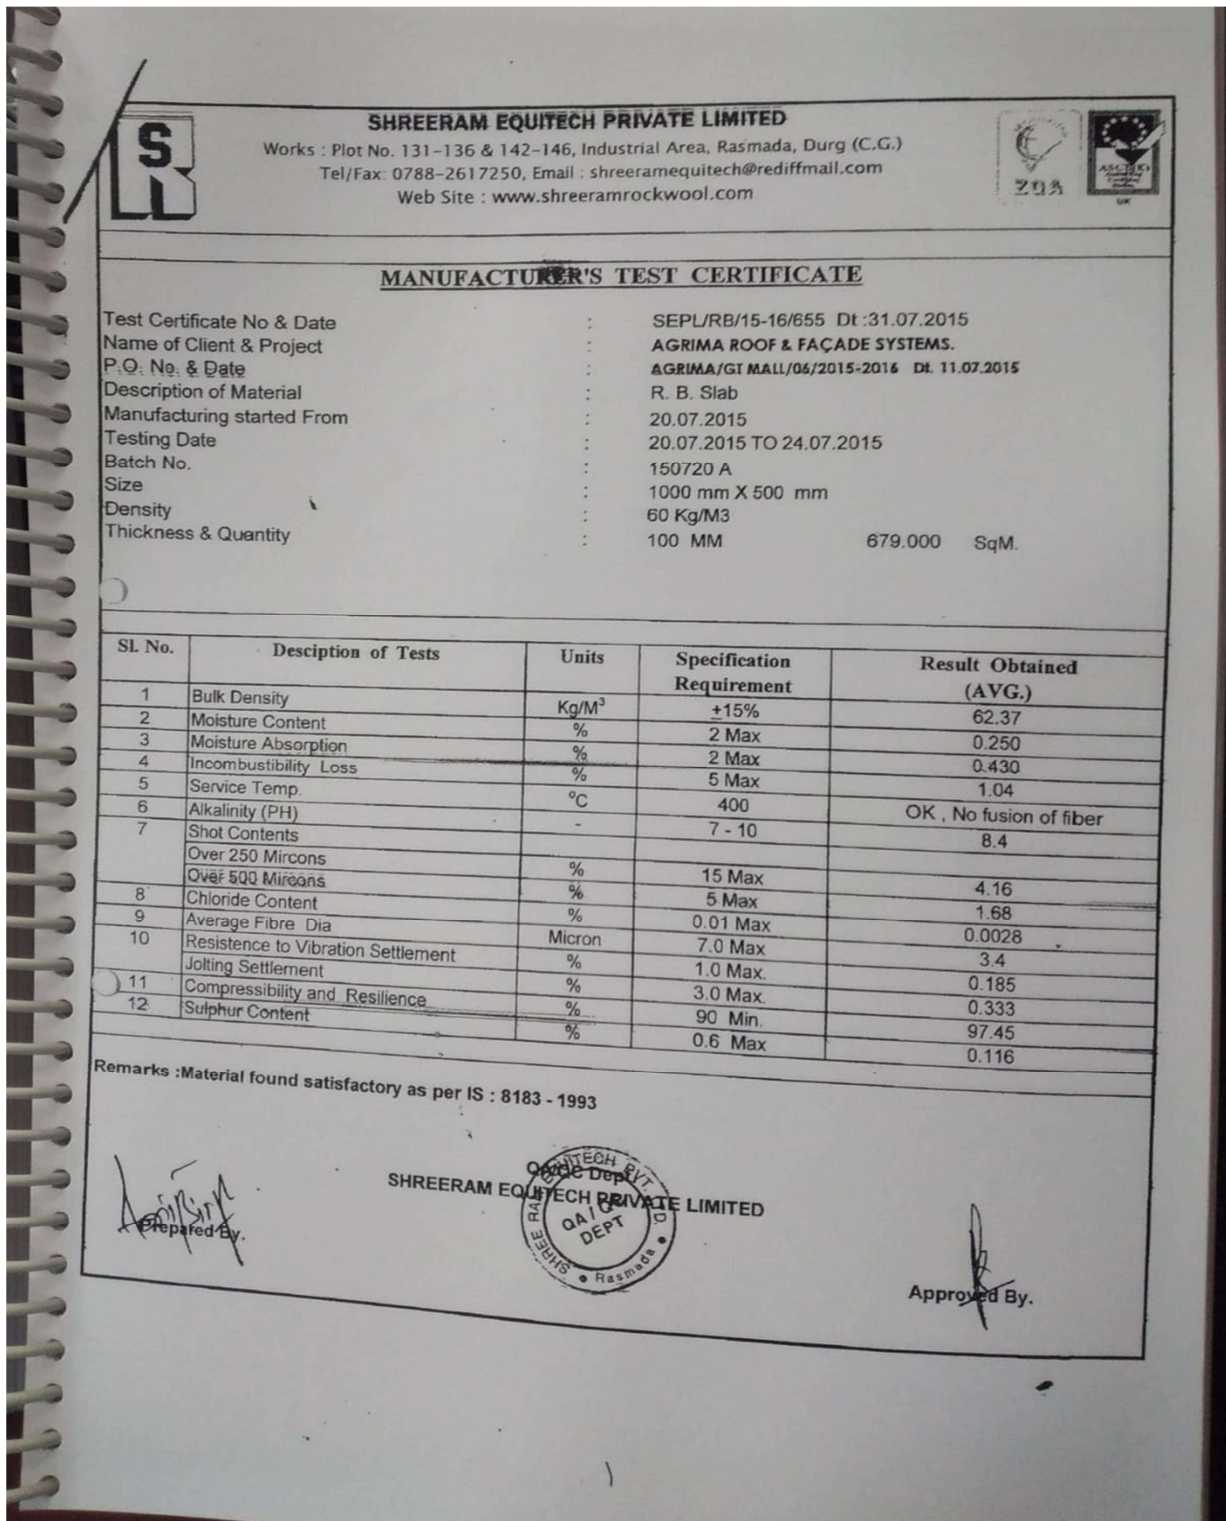 SHREERAM EQUITECH PRIVATE LIMITED
Works : Plot No. 131-136 & 142-146, Industrial Area, Rasmada, Durg (C.G.)
Tel/Fax: 0788-2617250, Email : shreeramequitech@rediffmail.com
Web Site : www.shreeramrockwool.com
SR
ZQA
UK
MANUFACTURER'S TEST CERTIFICATE
Test Certificate No & Date : SEPL/RB/15-16/655 Dt :31.07.2015
Name of Client & Project : AGRIMA ROOF & FAÇADE SYSTEMS.
P.O. No. & Date : AGRIMA/GT MALL/06/2015-2016 Dt. 11.07.2015
Description of Material : R. B. Slab
Manufacturing started From : 20.07.2015
Testing Date : 20.07.2015 TO 24.07.2015
Batch No. : 150720 A
Size : 1000 mm X 500 mm
Density : 60 Kg/M3
Thickness & Quantity : 100 MM 679.000 SqM.
Sl. No. Desciption of Tests Units Specification Requirement Result Obtained (AVG.)
1 Bulk Density Kg/M³ ±15% 62.37
2 Moisture Content % 2 Max 0.250
3 Moisture Absorption % 2 Max 0.430
4 Incombustibility Loss % 5 Max 1.04
5 Service Temp. °C 400 OK , No fusion of fiber
6 Alkalinity (PH) - 7 - 10 8.4
7 Shot Contents
Over 250 Mircons % 15 Max 4.16
Over 500 Mircons % 5 Max 1.68
8 Chloride Content % 0.01 Max 0.0028
9 Average Fibre Dia Micron 7.0 Max 3.4
10 Resistence to Vibration Settlement % 1.0 Max. 0.185
Jolting Settlement % 3.0 Max. 0.333
11 Compressibility and Resilience % 90 Min. 97.45
12 Sulphur Content % 0.6 Max 0.116
Remarks :Material found satisfactory as per IS : 8183 - 1993
QA/QC Dept
SHREERAM EQUITECH PRIVATE LIMITED
SHREE RAM EQUITECH PVT. LTD.
QA / QC
DEPT
Rasmada
Prepared By.
Approved By.